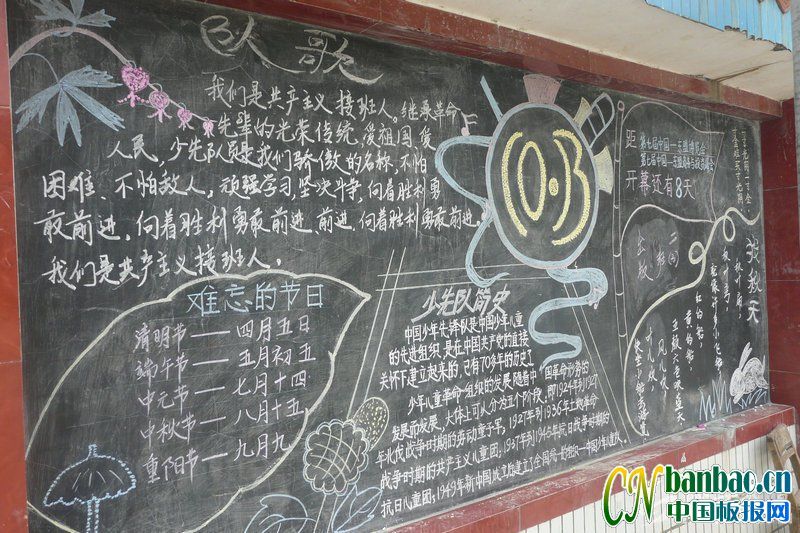 队 歌
我们是共产主义接班人。继承革命
先辈的光荣传统，爱祖国、爱
人民，少先队员是我们骄傲的名称，不怕
困难、不怕敌人，顽强学习，坚决斗争，向着胜利勇
敢前进，向着胜利勇敢前进，前进，向着胜利勇敢前进，
我们是共产主义接班人。
难忘的节日
清明节——四月五日
端午节——五月初五
中元节——七月十四
中秋节——八月十五
重阳节——九月九
10.13
少先队简史
中国少年先锋队是中国少年儿童
的先进组织，是在中国共产党的直接
关怀下建立起来的，已有70多年的历史了
少年儿童革命组织的发展随着中国革命形势的
发展而发展，大体上可以分为五个阶段，即1924年到1927
年北伐战争时期的劳动童子军；1927年到1936年土地革命
战争时期的共产主义儿童团；1937年到1945年抗日战争时期的
抗日儿童团；1949年新中国成立后建立了全国统一的组织—中国少年儿童队
距
第七届中国—东盟博览会
开幕还有8天
出版 二(2)班
找秋天
CN banbao.cn
中国板报网